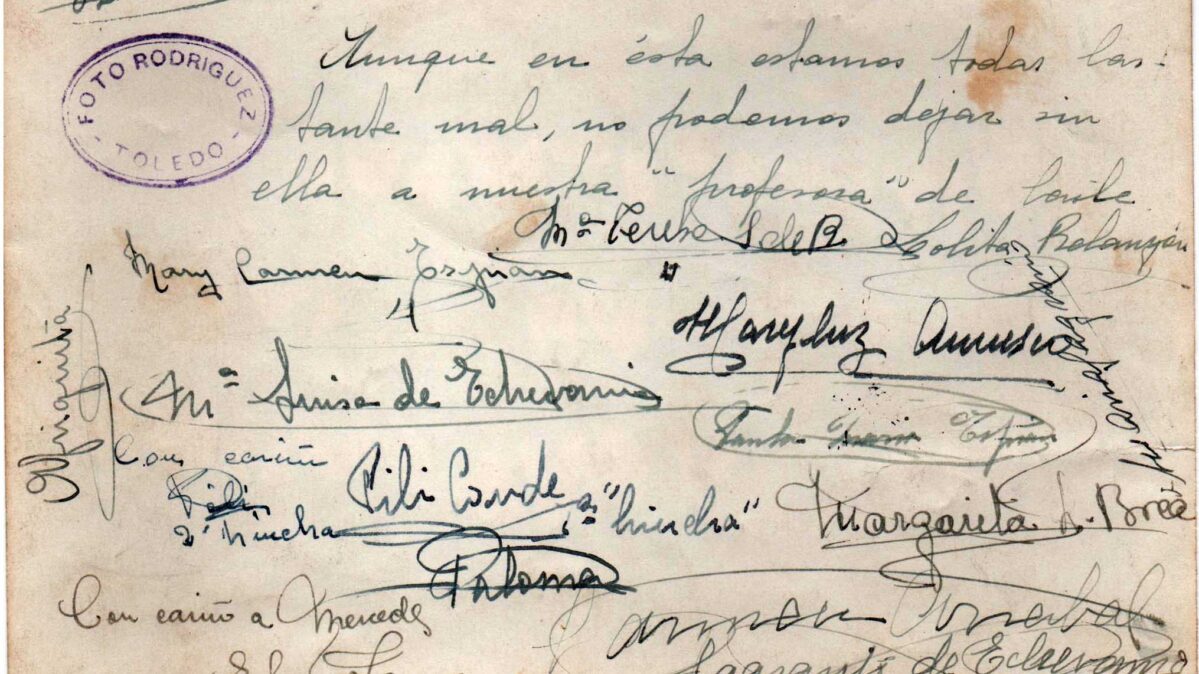 FOTO RODRIGUEZ
- TOLEDO -
Aunque en ésta estamos todas bas-
tante mal, no podemos dejar sin
ella a nuestra "profesora" de baile
Mª Teresa S de R. Lolita
Mary Carmen Espinán "
Maryluz
Margarita
Mª Luisa de Echevarria
Con cariño
Pili Conde 1ª "hincha"
Pili
2ª hincha
Margarita L. Brea
Paloma
Con cariño a Mercedes
Carmen
Sagrario de Echevarria